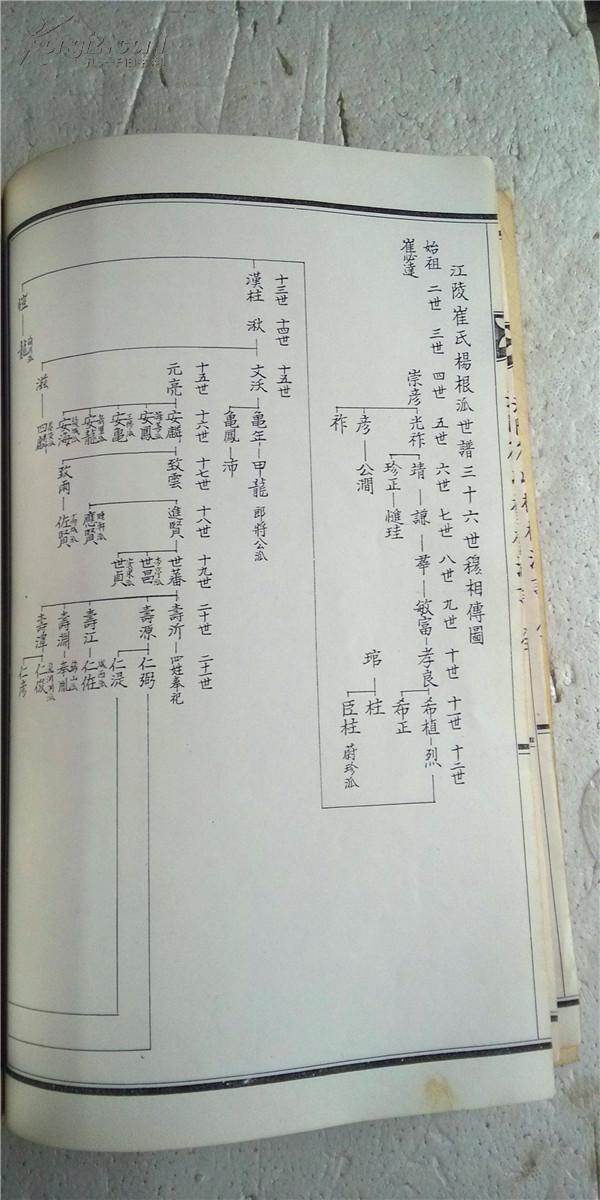 江陵崔氏楊根派世譜三十六世穆相傳圖
始祖 二世 三世 四世 五世 六世 七世 八世 九世 十世 十一世 十二世
崔必達 崇彦 光祚 靖 謙 羣 敏富 孝良 希植 烈
珍正 希正
彦 公澗 琯 柱
祚 臣柱 蔚珍派
十三世 十四世 十五世
漢柱 湫 文沃 亀年 甲龍 郎將公派
亀鳳 沛
十五世 十六世 十七世 十八世 十九世 二十世 二十一世
元亮 安麟 致雲 進賢 世蕃 壽沂 四姓奉祀
安鳳 世昌 壽源 仁弼
安亀 世貞 仁湜
安龍 應賢 壽江 仁佐
安海 致雨 佐賢 壽淵
滋 四麟 壽潭 仁俊
龍 仁彦